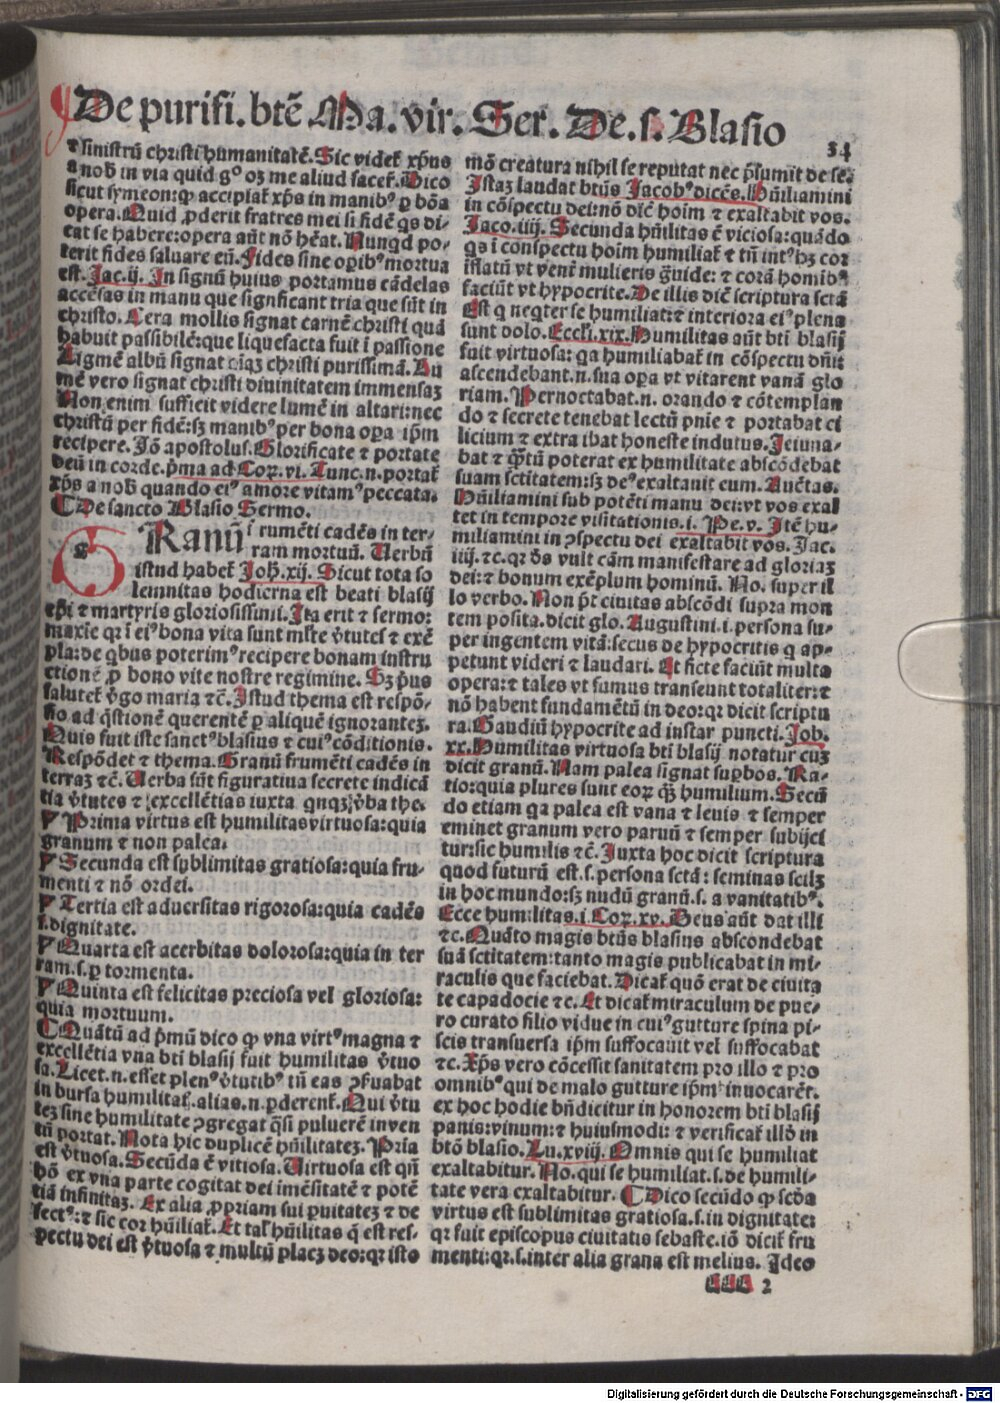 De purifi. btē Ma. vir. Ser. De. s. Blasio
34
⁊ sinistrū christi humanitatē. Sic videt̄ xp̄us
a nob̄ in via quid gº oꝫ me aliud facet̄. Dico
sicut symeon: ꝙ accipiat̄ xp̄s in manibꝰ ꝑ bōa
opera. Quid ꝓderit fratres mei si fidē qs di-
cat se habere: opera aūt nō hēat. Nunqd po-
terit fides saluare eū. Fides sine oꝑibꝰ mortua
est. Jac. ij. In signū huius portamus cādelas
accēsas in manu que signficant tria que sūt in
christo. Cera mollis signat carnē christi quā
habuit passibilē: que liquefacta fuit ī passione
Ligmē albū signat aīaꝫ christi purissimā. Lu
mē vero signat christi diuinitatem immensaꝫ
Non enim sufficit videre lumē in altari: nec
christū per fidē: sꝫ manibꝰ per bona oꝑa ip̄m
recipere. Jō apostolus. Glorificate ⁊ portate
deū in corde. p̄ma ad Coꝝ. vi. Tunc. n. portat̄
xp̄s a nob̄ quando eiꝰ amore vitamꝰ peccata.
¶ De sancto Blasio Sermo.
GRanū frumēti cadēs in ter-
ram mortuū. Uerbū
istud habet̄ Joh̄. xij. Sicut tota so
lemnitas hodierna est beati blasij
ep̄i ⁊ martyris gloriosissimi. Ita erit ⁊ sermo:
maxīe qꝛ ī eiꝰ bona vita sunt ml̄te v̄tutes ⁊ exē
pla: de qbus poterimꝰ recipere bonam instru
ctionē ꝓ bono vite nostre regimine. Sꝫ p̄us
salutet̄ v̄go maria ⁊c̄. Istud thema est respō-
sio ad q̄stionē querentē ꝑ aliquē ignoranteꝫ.
Quis fuit iste sanctꝰ blasius ⁊ cuiꝰ cōditionis.
Respōdet ⁊ thema. Granū frumēti cadēs in
terraꝫ ⁊c̄. Uerba sūt figuratiua secrete indicā
tia v̄tutes ⁊ excellētias iuxta qnqꝫ v̄ba the.
¶ Prima virtus est humilitas virtuosa: quia
granum ⁊ non palea.
¶ Secunda est sublimitas gratiosa: quia fru-
menti ⁊ nō ordei.
¶ Tertia est aduersitas rigorosa: quia cadēs
s. dignitate.
¶ Quarta est acerbitas dolorosa: quia in ter
ram. s. ꝑ tormenta.
¶ Quinta est felicitas preciosa vel gloriosa:
quia mortuum.
¶ Quātū ad p̄mū dico ꝙ vna virtꝰ magna ⁊
excellētia vna bti blasij fuit humilitas v̄tuo
sa. Licet. n. esset plenꝰ v̄tutibꝰ tn̄ eas ꝯseruabat
in bursa humilitat̄. alias. n. ꝑderent̄. Qui v̄tu
teꝫ sine humilitate ꝯgregat q̄si puluerē in ven
tū portat. Nota hic duplicē hūilitateꝫ. Pria
est v̄tuosa. Secūda ē vitiosa. Uirtuosa est qn̄
hō ex vna parte cogitat dei imēsitatē ⁊ potē
tiā infinitaꝫ. Ex alia ꝓpriam sui puitateꝫ ⁊ de
fectꝰ: ⁊ sic coꝛ hūiliat̄. Et tal̄ hūilitas q̄ est res-
pectu dei est v̄tuosa ⁊ multū placꝫ deo: qꝛ isto
mō creatura nihil se reputat nec p̄sumit de se.
Istaꝫ laudat btūs Jacobꝰ dicēs. Hūiliamini
in cōspectu dei: nō dic̄ hoim ⁊ exaltabit vos.
Jaco. iiij. Secunda hūilitas ē viciosa: quādo
qs ī conspectu hoīm humiliat̄ ⁊ tn̄ intꝰ hꝫ coꝛ
īflatū vt vent̄ mulieris gūide: ⁊ corā homibꝰ
faciūt vt hypocrite. De illis dic̄ scriptura sctā
Est q neqter se humiliat: ⁊ interiora eiꝰ plena
sunt dolo. Eccli. xix. Humilitas aūt bti blasij
fuit virtuosa: qa humiliabat̄ in cōspectu dn̄i:
ascendebant. n. sua oꝑa vt vitarent vanā glo
riam. Pernoctabat. n. orando ⁊ cōtemplan
do ⁊ secrete tenebat lectū pnie ⁊ portabat ci
licium ⁊ extra ibat honeste indutus. Jeiuna-
bat ⁊ q̄tū poterat ex humilitate abscōdebat
suam sctitatem: sꝫ deꝰ exaltauit eum. Auctas.
Hūiliamini sub potēti manu dei: vt vos exal
tet in tempore visitationis. i. Pe. v. Itē hu-
miliamini in ꝯspectu dei exaltabit vos. Jac.
iiij. ⁊c. qꝛ d̄s vult cām manifestare ad gloriaꝫ
dei: ⁊ bonum exēplum hominū. No. super il
lo verbo. Non pt̄ ciuitas abscōdi supra mon
tem posita. dicit glo. Augustini. i. persona su-
per ingentem vitā: secus de hypocritis q ap-
petunt videri ⁊ laudari. Et ficte faciūt multa
opera: ⁊ tales vt fumus transeunt totaliter: ⁊
nō habent fundamētū in deo: qꝛ dicit scriptu
ra. Gaudiū hypocrite ad instar puncti. Job.
xx. Humilitas virtuosa bti blasij notatur cuꝫ
dicit granū. Nam palea signat suꝑbos. Ra-
tio: quia plures sunt eoꝝ q̄ꝫ humilium. Secū
do etiam qa palea est vana ⁊ leuis ⁊ semper
eminet granum vero paruū ⁊ semper subijci
tur: sic humilis ⁊c̄. Iuxta hoc dicit scriptura
quod futurū est. s. persona sctā: seminas scilꝫ
in hoc mundo: sꝫ nudū granū. s. a vanitatibꝰ.
Ecce humilitas. i. Coꝝ. xv. Deus aūt dat illi
⁊c. Quāto magis btūs blasius abscondebat
suā sctitatem: tanto magis publicabat in mi-
raculis que faciebat. Dicat̄ quō erat de ciuita
te capadocie ⁊c. Et dicat̄ miraculum de pue-
ro curato filio vidue in cuiꝰ gutture spina pi-
scis transuersa ip̄m suffocauit vel suffocabat
⁊c. Xp̄s vero cōcessit sanitatem pro illo ⁊ pro
omnibꝰ qui de malo gutture ip̄m inuocarēt.
ex hoc hodie bn̄dicitur in honorem bti blasij
panis: vinum: ⁊ huiusmodi: ⁊ verificat̄ illō in
btō blasio. Lu. xviij. Omnis qui se humiliat
exaltabitur. No. qui se humiliat. s. de humili-
tate vera exaltabitur. ¶ Dico secūdo ꝙ scd̄a
virtus est sublimitas gratiosa. s. in dignitate:
qꝛ fuit episcopus ciuitatis sebaste. iō dicit̄ fru
menti: qꝛ. s. inter alia grana est melius. Ideo
EEE 2
Digitalisierung gefördert durch die Deutsche Forschungsgemeinschaft - DFG